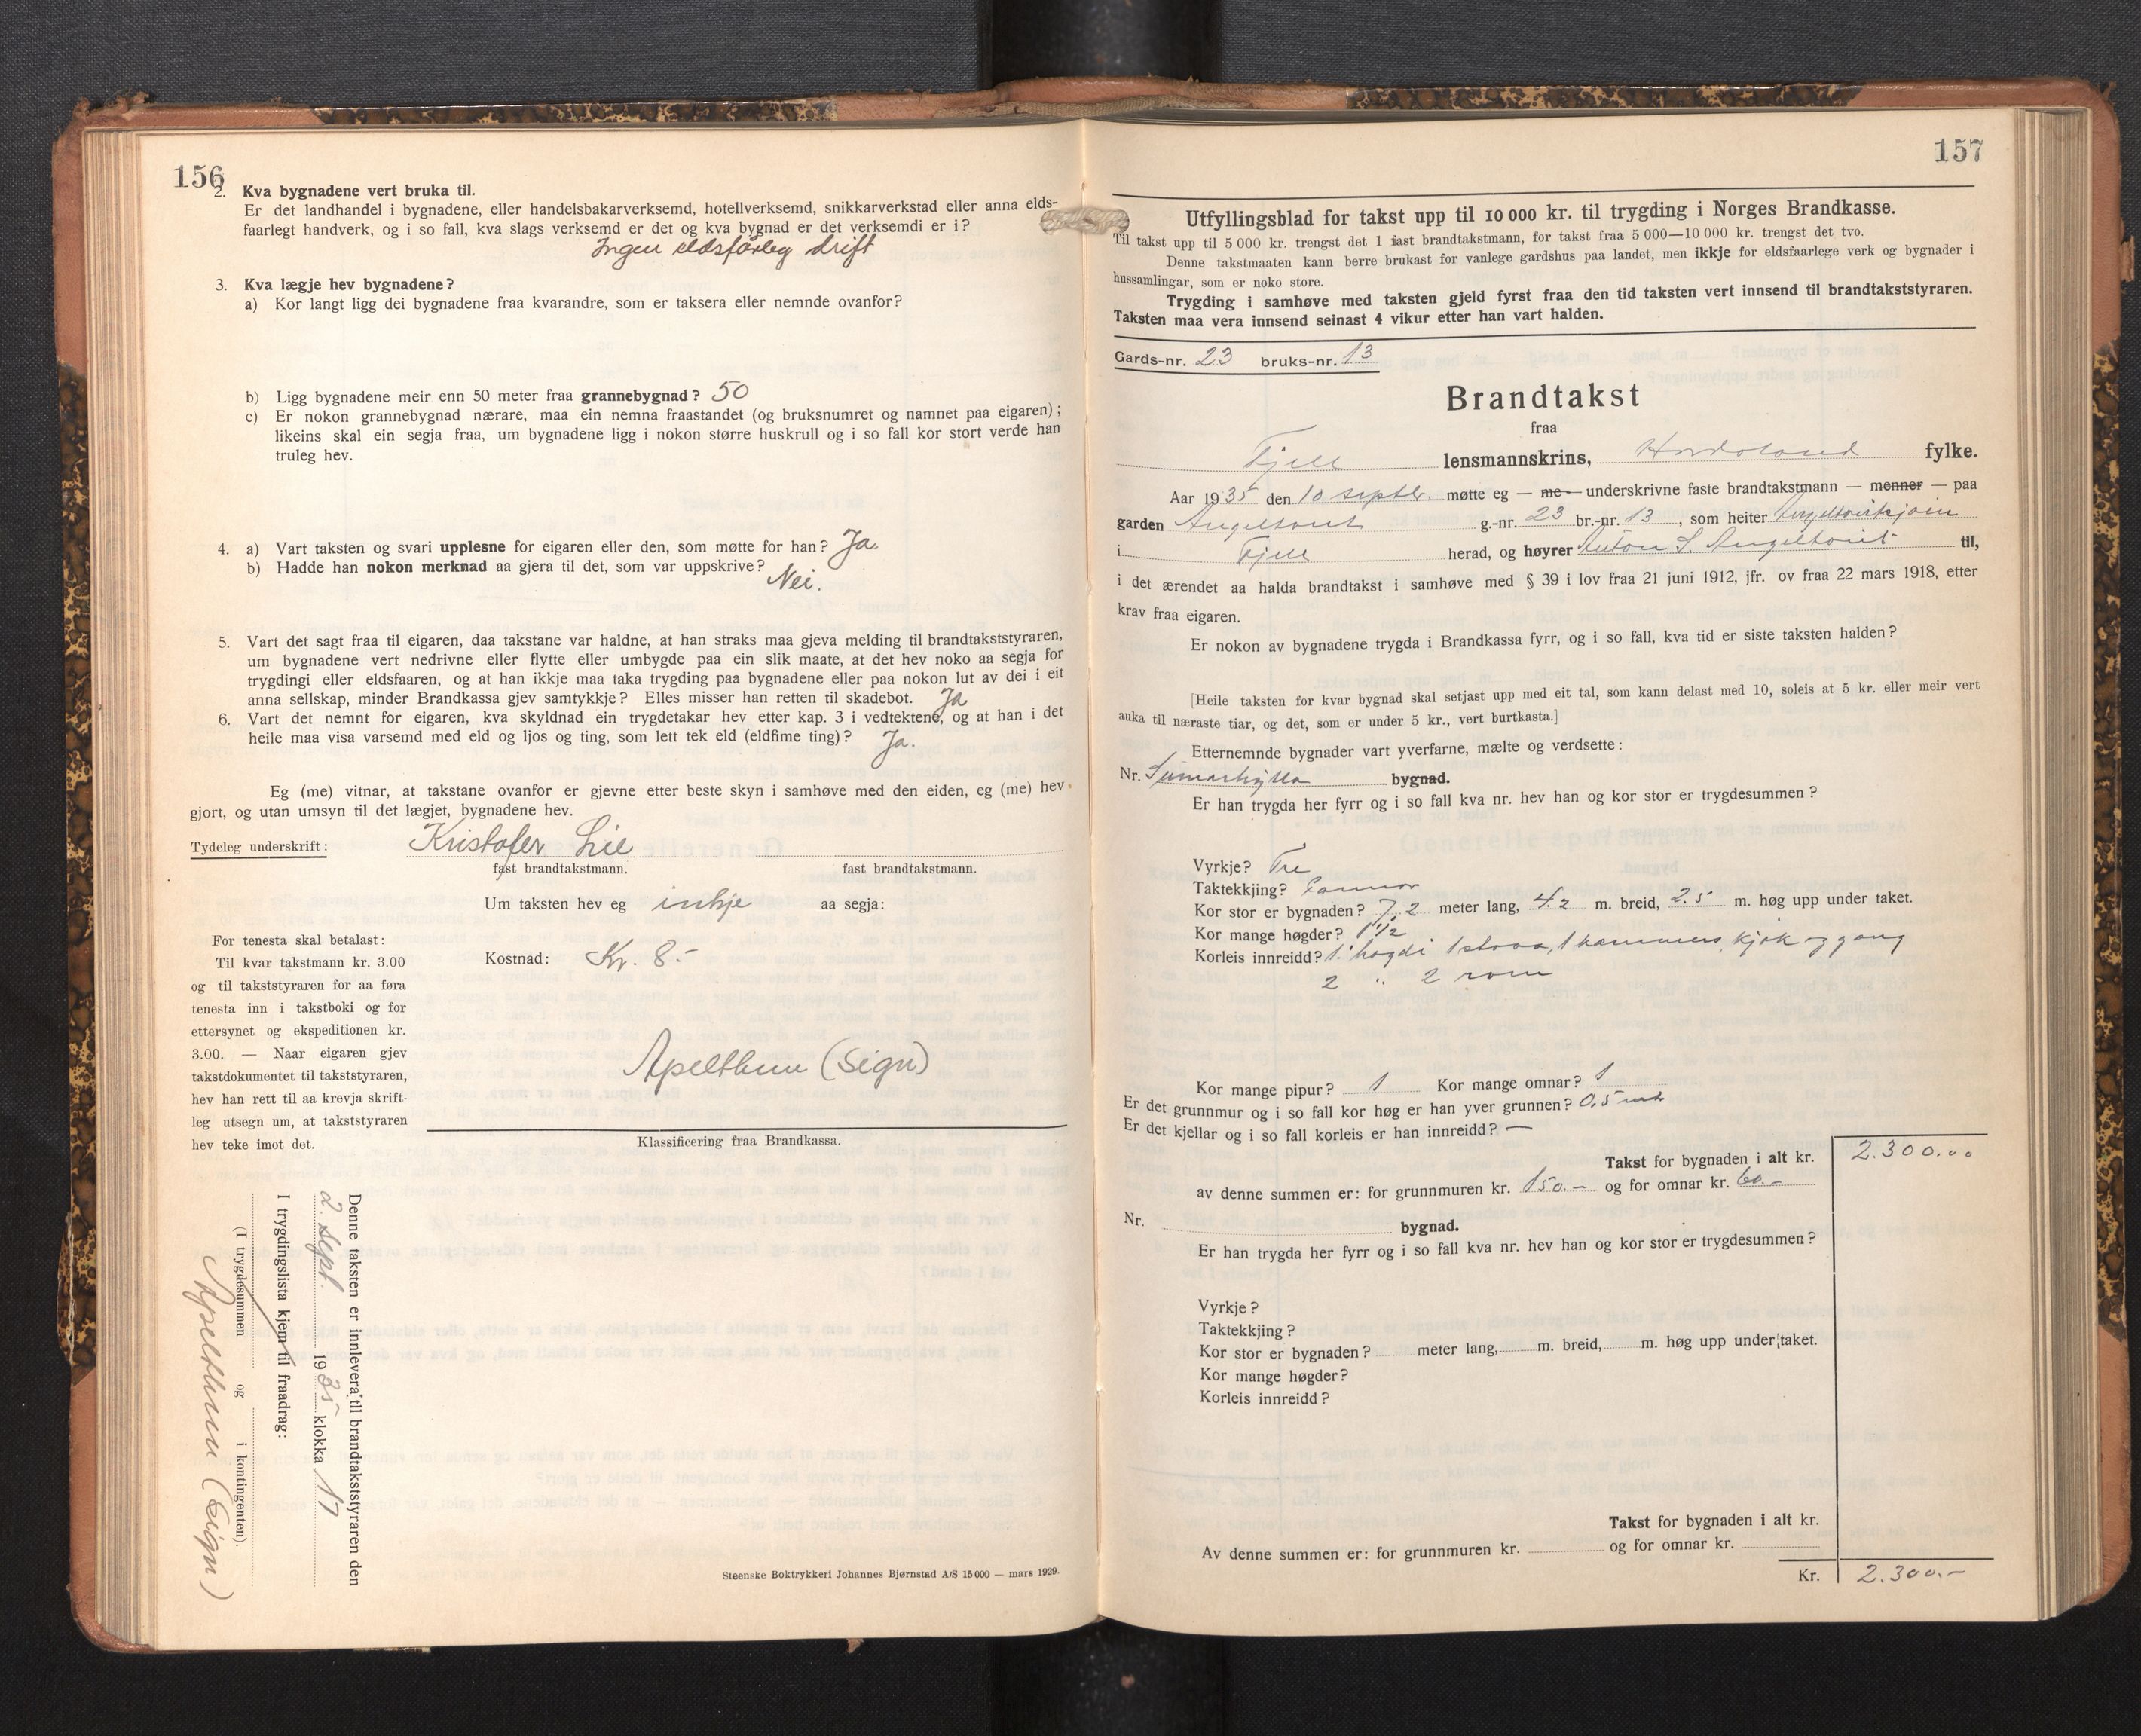 156
2. Kva bygnadene vert bruka til.
Er det landhandel i bygnadene, eller handelsbakarverksemd, hotellverksemd, snikkarverkstad eller anna elds-
faarlegt handverk, og i so fall, kva slags verksemd er det og kva bygnad er det verksemdi er i?
Ingen eldsfårleg drift
3. Kva lægje hev bygnadene?
a) Kor langt ligg dei bygnadene fraa kvarandre, som er taksera eller nemnde ovanfor?
b) Ligg bygnadene meir enn 50 meter fraa grannebygnad? 50
c) Er nokon grannebygnad nærare, maa ein nemna fraastandet (og bruksnumret og namnet paa eigaren);
likeins skal ein segja fraa, um bygnadene ligg i nokon større huskrull og i so fall kor stort verde han
truleg hev.
4. a) Vart taksten og svari upplesne for eigaren eller den, som møtte for han? Ja.
b) Hadde han nokon merknad aa gjera til det, som var uppskrive?
Nei.
5. Vart det sagt fraa til eigaren, daa takstane var haldne, at han straks maa gjeva melding til brandtakststyraren,
um bygnadene vert nedrivne eller flytte eller umbygde paa ein slik maate, at det hev noko aa segja for
trygdingi eller eldsfaaren, og at han ikkje maa taka trygding paa bygnadene eller paa nokon lut av dei i eit
anna sellskap, minder Brandkassa gjev samtykkje? Elles misser han retten til skadebot. Ja
6. Vart det nemnt for eigaren, kva skyldnad ein trygdetakar hev etter kap. 3 i vedtektene, og at han i det
heile maa visa varsemd med eld og ljos og ting, som lett tek eld (eldfime ting)? Ja.
Eg (me) vitnar, at takstane ovanfor er gjevne etter beste skyn i samhøve med den eiden, eg (me) hev
gjort, og utan umsyn til det lægjet, bygnadene hev.
Tydeleg underskrift: Kristofer Lie
fast brandtakstmann. fast brandtakstmann.
Um taksten hev eg inkje aa segja:
For tenesta skal betalast:
Til kvar takstmann kr. 3.00
og til takststyraren for aa føra
tenesta inn i takstboki og for
ettersynet og ekspeditionen kr.
3.00. — Naar eigaren gjev
takstdokumentet til takststyraren,
hev han rett til aa krevja skrift-
leg utsegn um, at takststyraren
hev teke imot det.
Kostnad: Kr. 8.-
Apelthun (Sign)
Klassificering fraa Brandkassa.
Denne taksten er innlevera til brandtakststyraren den
2. sept. 1935 klokka 17
I trygdingslista kjem til fraadrag:
(I trygdesummen og i kontingenten).
Apelthun (Sign)
Steenske Boktrykkeri Johannes Bjørnstad A/S 15 000 — mars 1929.
157
Utfyllingsblad for takst upp til 10 000 kr. til trygding i Norges Brandkasse.
Til takst upp til 5 000 kr. trengst det 1 fast brandtakstmann, for takst fraa 5 000—10 000 kr. trengst det tvo.
Denne takstmaaten kann berre brukast for vanlege gardshus paa landet, men ikkje for eldsfaarlege verk og bygnader i
hussamlingar, som er noko store.
Trygding i samhøve med taksten gjeld fyrst fraa den tid taksten vert innsend til brandtakststyraren.
Taksten maa vera innsend seinast 4 vikur etter han vart halden.
Gards-nr. 23 bruks-nr. 13
Brandtakst
fraa
Fjell lensmannskrins, Hordaland fylke.
Aar 1935 den 10 septbr. møtte eg — me — underskrivne faste brandtakstmann — menner — paa
garden Angeltveit g.-nr. 23 br.-nr. 13, som heiter
i Fjell herad, og høyrer Anton S. Angeltveit til,
i det ærendet aa halda brandtakst i samhøve med § 39 i lov fraa 21 juni 1912, jfr. ov fraa 22 mars 1918, etter
krav fraa eigaren.
Er nokon av bygnadene trygda i Brandkassa fyrr, og i so fall, kva tid er siste taksten halden?
[Heile taksten for kvar bygnad skal setjast upp med eit tal, som kann delast med 10, soleis at 5 kr. eller meir vert
auka til næraste tiar, og det, som er under 5 kr., vert burtkasta.]
Etternemnde bygnader vart yverfarne, mælte og verdsette:
Nr. Sumarhytta bygnad.
Er han trygda her fyrr og i so fall kva nr. hev han og kor stor er trygdesummen?
Vyrkje? Tre
Taktekkjing? Pannor
Kor stor er bygnaden? 7,2 meter lang, 4.2 m. breid, 2.5 m. høg upp under taket.
Kor mange høgder? 1 1/2
Korleis innreidd? 1. høgdi 1 stova, 1 kammers, kjøk og gang
2 " 2 rom
Kor mange pipur? 1 Kor mange omnar? 1
Er det grunnmur og i so fall kor høg er han yver grunnen? 0,5 mtr
Er det kjellar og i so fall korleis er han innreidd? —
Takst for bygnaden i alt kr. 2.300.00
av denne summen er: for grunnmuren kr. 150.- og for omnar kr. 60.-
Nr. bygnad.
Er han trygda her fyrr og i so fall kva nr. hev han og kor stor er trygdesummen?
Vyrkje?
Taktekkjing?
Kor stor er bygnaden? meter lang, m. breid, m. høg upp under taket.
Kor mange høgder?
Korleis innreidd?
Takst for bygnaden i alt kr.
Av denne summen er: for grunnmuren kr. og for omnar kr.
Kr. 2.300.-